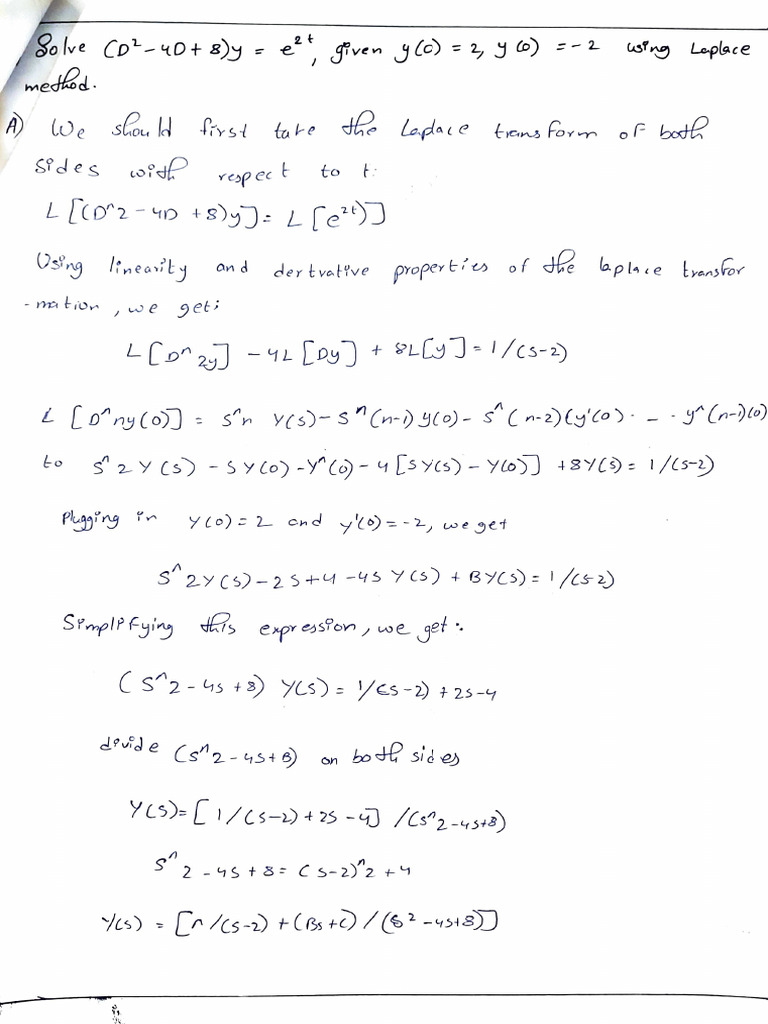 Solve (D²-4D+8)y = e^2t, given y(0) = 2, y(0) = -2 using Laplace
method.
A) We should first take the Laplace transform of both
sides with respect to t:
L[(D^2-4D+8)y] = L[e^2t)]
Using linearity and dertvative properties of the laplace transfor
-mation, we get;
L[D^2y] - 4L[Dy] + 8L[y] = 1/(s-2)
L[D^ny(0)] = S^n Y(s) - S^(n-1) y(0) - S^(n-2)(y'(0) . - - y^(n-1)(0)
to S^2 Y(s) - SY(0) - Y^(0) - 4[SY(s) - Y(0)] + 8Y(s) = 1/(s-2)
Plugging in Y(0) = 2 and y'(0) = -2, we get
S^2Y(s) - 2S + 4 - 4S Y(s) + BY(s) = 1/(s-2)
Simplifying this expression, we get:
(S^2 - 4s + 8) Y(s) = 1/(s-2) + 2s - 4
divide (S^2 - 4s + B) on both sides
Y(s) = [1/(s-2) + 2s - 4] /(s^2 - 4s + 8)
S^2 - 4s + 8 = (s-2)^2 + 4
Y(s) = [n/(s-2) + (Bs+c)/(S² - 4s + 8)]